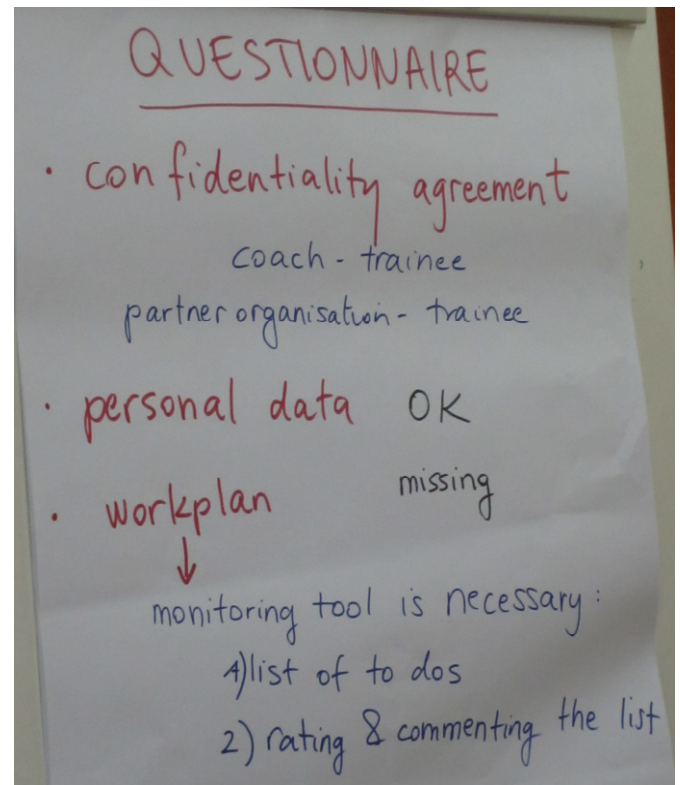 QUESTIONNAIRE
· confidentiality agreement
coach - trainee
partner organisation - trainee
· personal data OK
· workplan missing
↓
monitoring tool is necessary:
1) list of to dos
2) rating & commenting the list